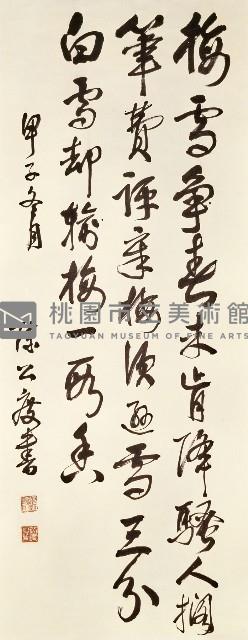 梅雪爭春未肯降騷人擱
筆費評章梅須遜雪三分
白雪却輸梅一段香
甲子冬月
公度書
桃園市立美術館
TAOYUAN MUSEUM OF FINE ARTS